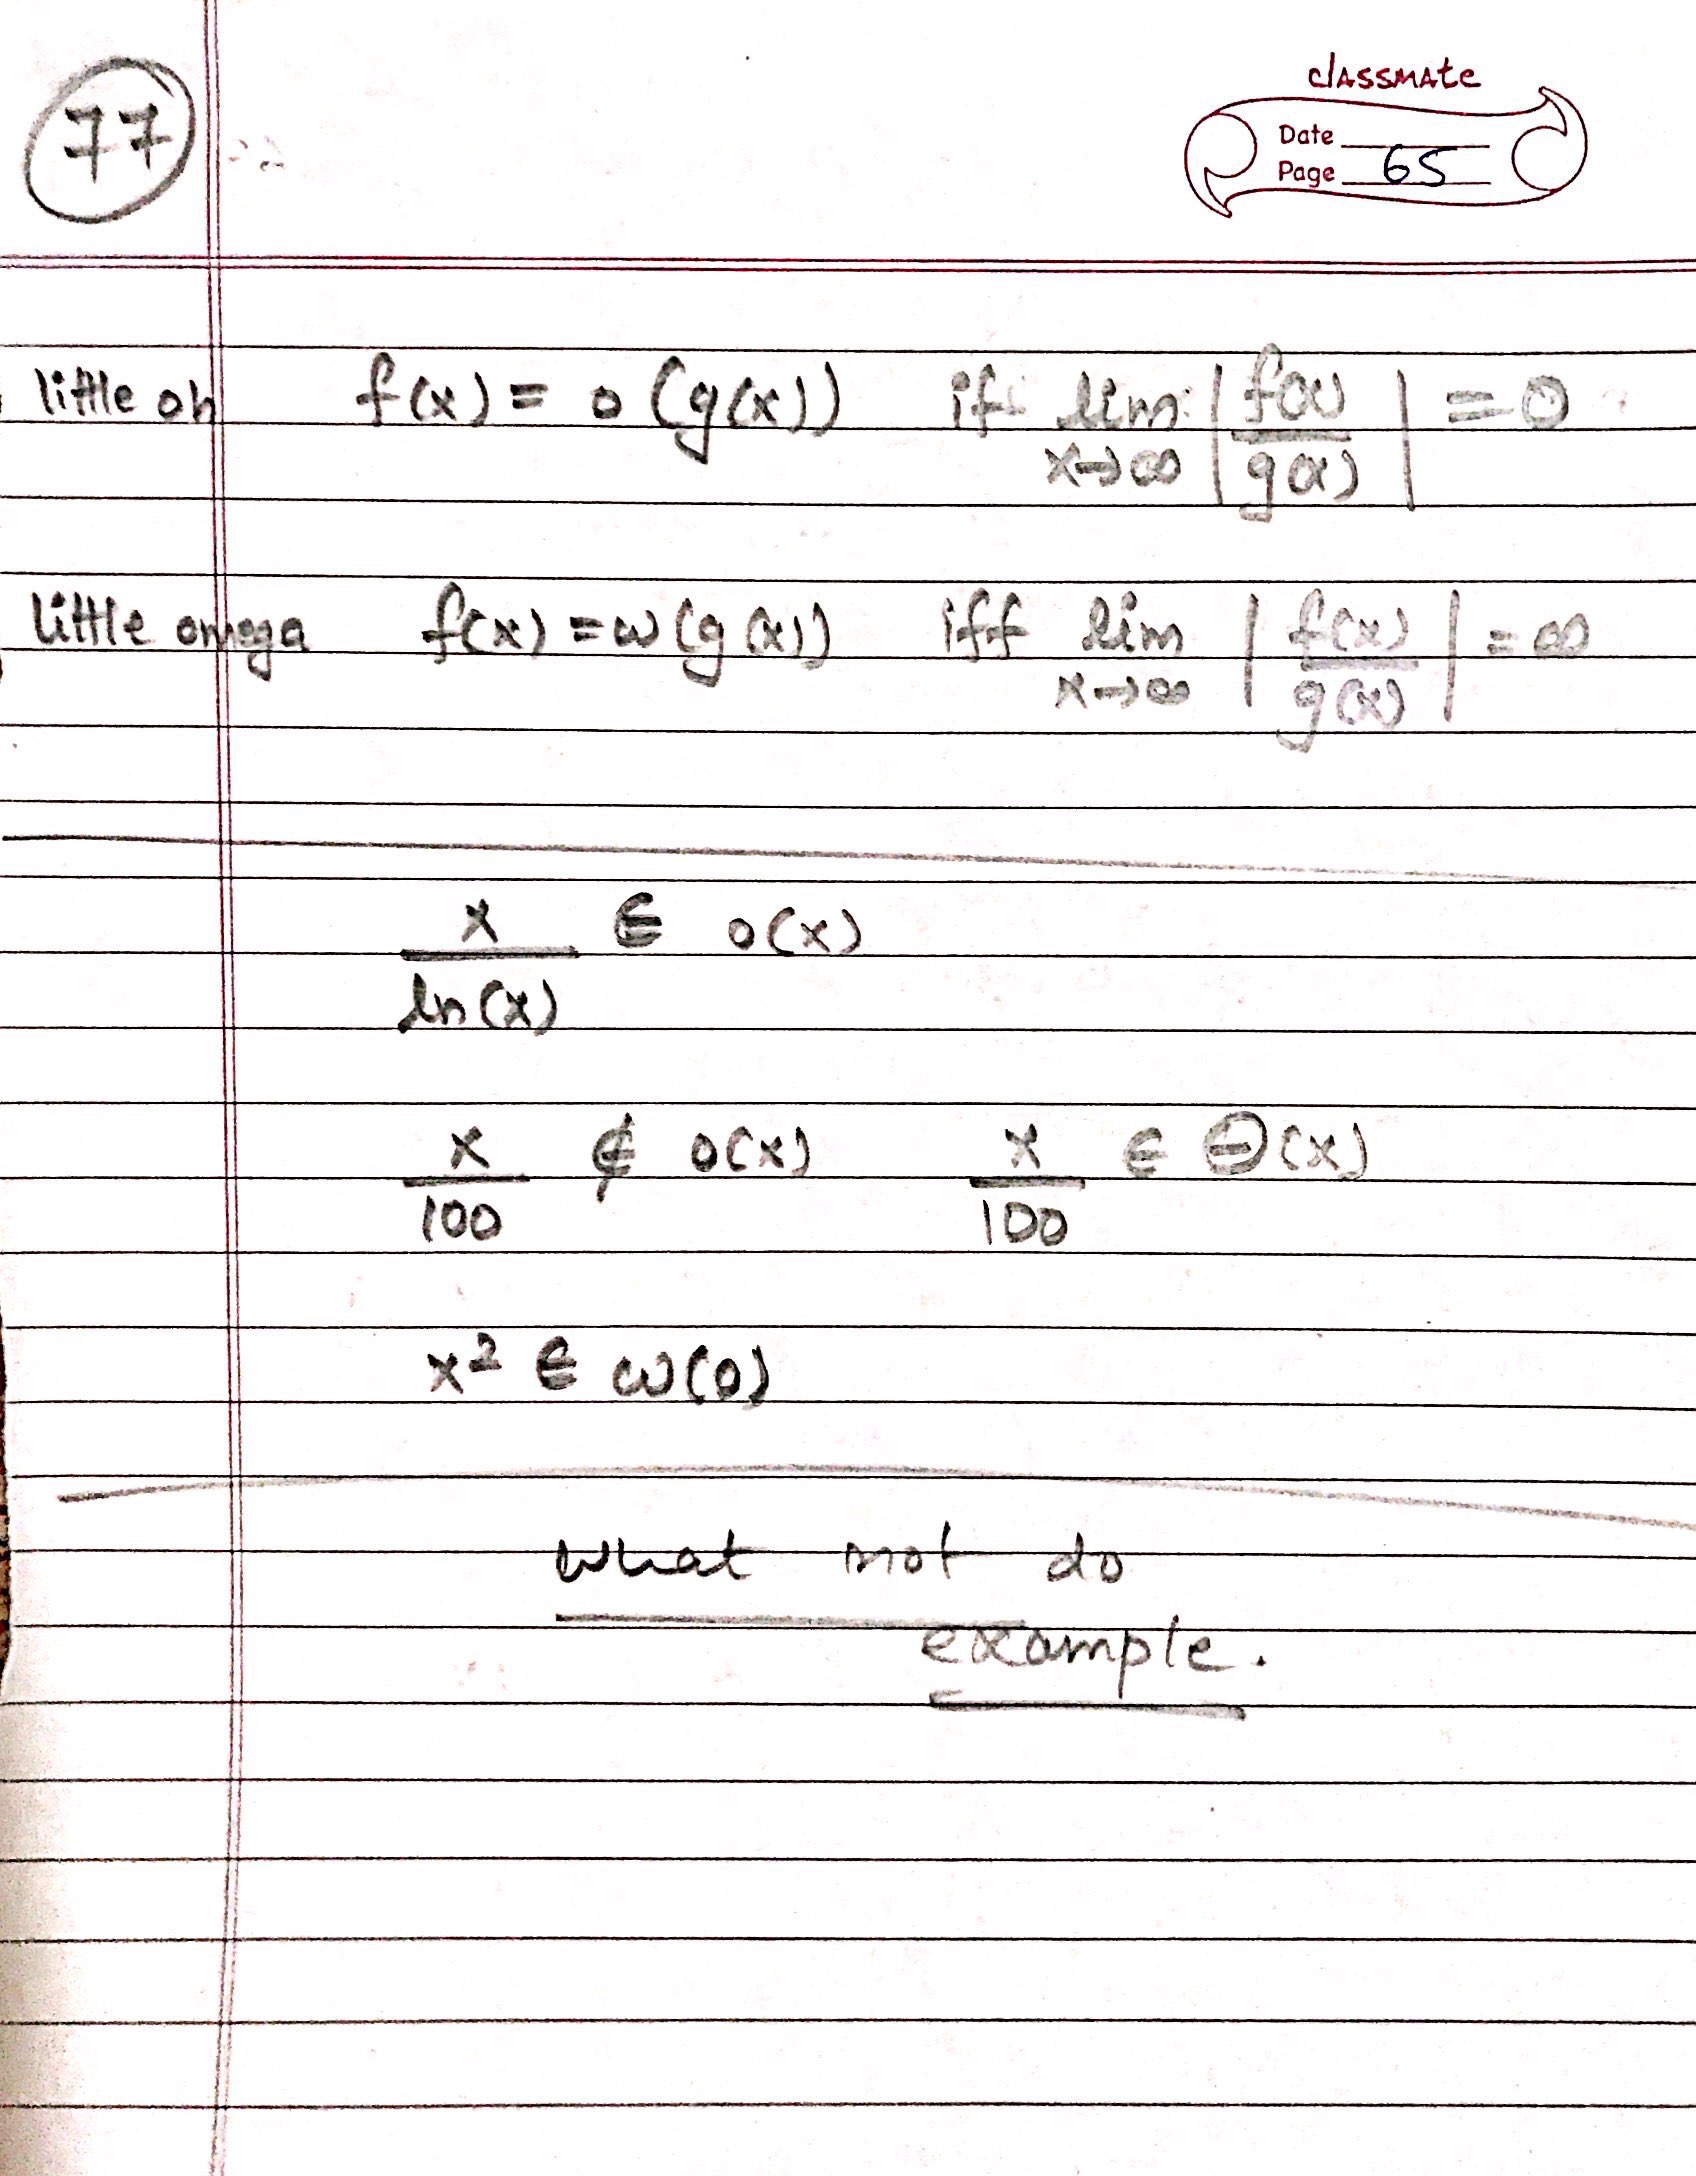 77
classmate
Date
Page 65
little oh f(x) = o(g(x)) if lim x→∞ |f(x)/g(x)| = 0
little omega f(x) = ω(g(x)) iff lim x→∞ |f(x)/g(x)| = ∞
x/ln(x) ∈ o(x)
x/100 ∉ o(x) x/100 ∈ Θ(x)
x² ∈ ω(0)
what not do
example.